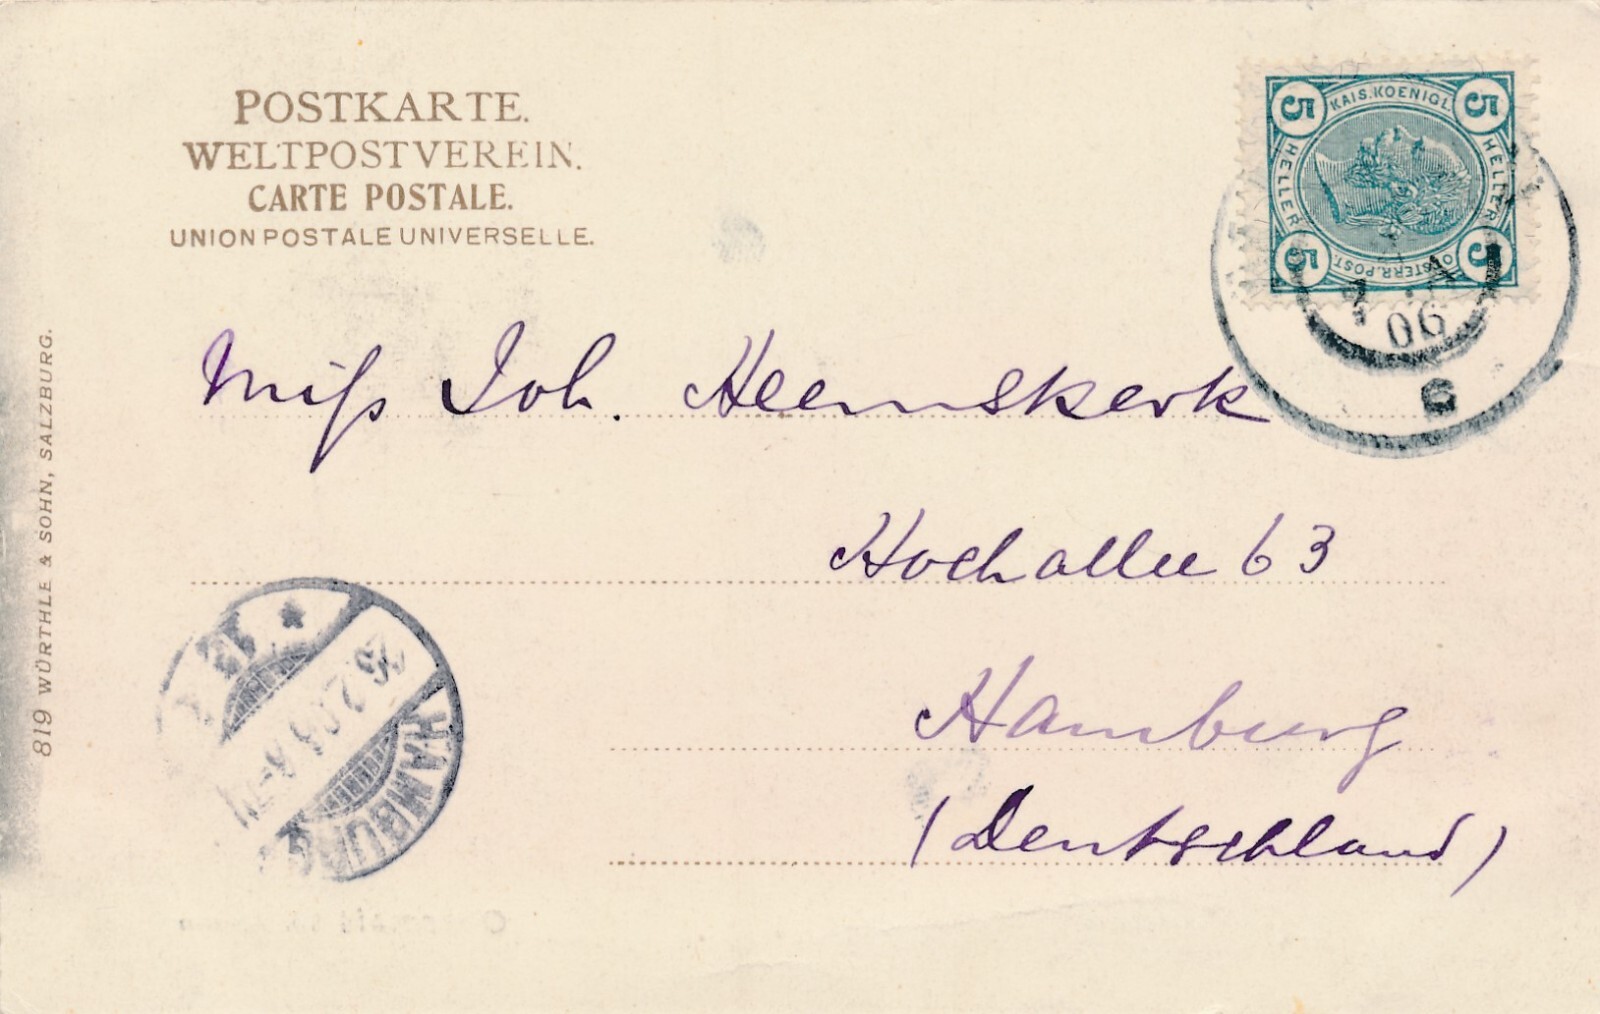 POSTKARTE.
WELTPOSTVEREIN.
CARTE POSTALE.
UNION POSTALE UNIVERSELLE.
5 KAIS. KOENIGL. 5
HELLER HELLER
5 OESTERR. POST. 5
06
6
Miſs Joh. Heemskerk
Hochallee 63
Hamburg
(Deutschland)
* 13
HAMBURG
819 WÜRTHLE & SOHN, SALZBURG.